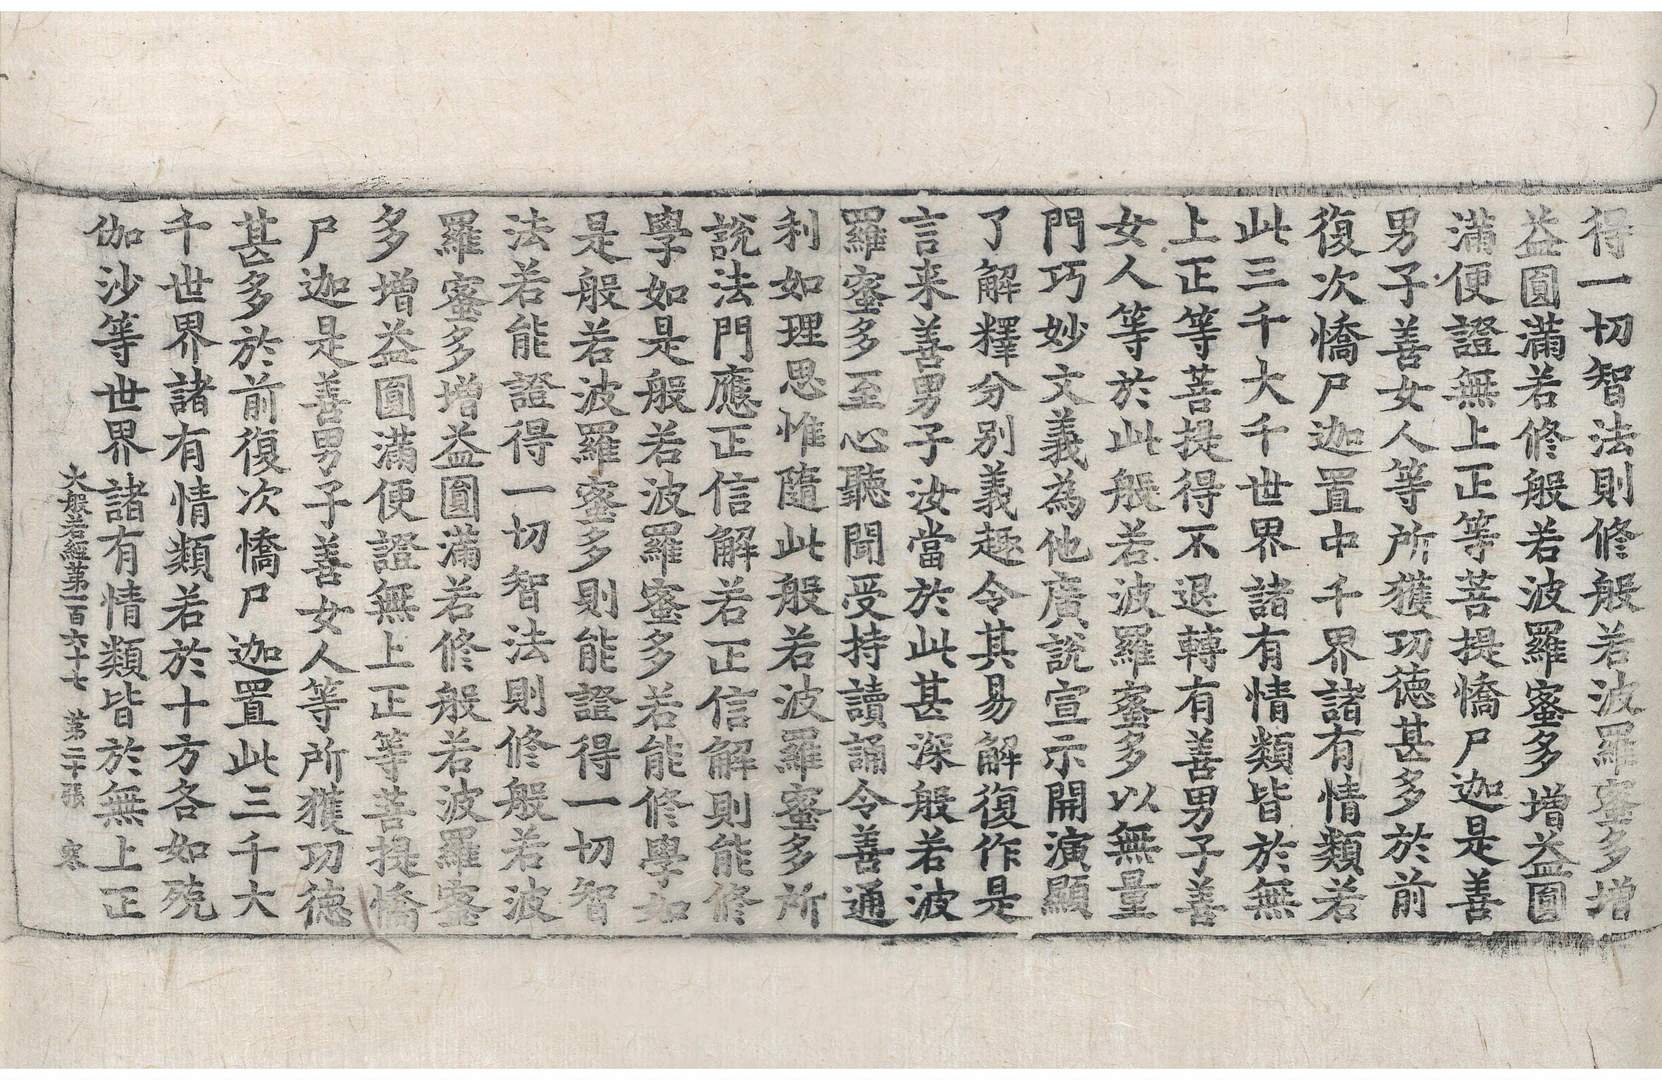 得一切智法則修般若波羅蜜多增
益圓滿若修般若波羅蜜多增益圓
滿便證無上正等菩提憍尸迦是善
男子善女人等所獲功德甚多於前
復次憍尸迦置中千界諸有情類若
此三千大千世界諸有情類皆於無
上正等菩提得不退轉有善男子善
女人等於此般若波羅蜜多以無量
門巧妙文義為他廣說宣示開演顯
了解釋分別義趣令其易解復作是
言来善男子汝當於此甚深般若波
羅蜜多至心聽聞受持讀誦令善通
利如理思惟隨此般若波羅蜜多所
說法門應正信解若正信解則能修
學如是般若波羅蜜多若能修學如
是般若波羅蜜多則能證得一切智
法若能證得一切智法則修般若波
羅蜜多增益圓滿若修般若波羅蜜
多增益圓滿便證無上正等菩提憍
尸迦是善男子善女人等所獲功德
甚多於前復次憍尸迦置此三千大
千世界諸有情類若於十方各如殑
伽沙等世界諸有情類皆於無上正
大般若經第一百六十七 第二十張 寒